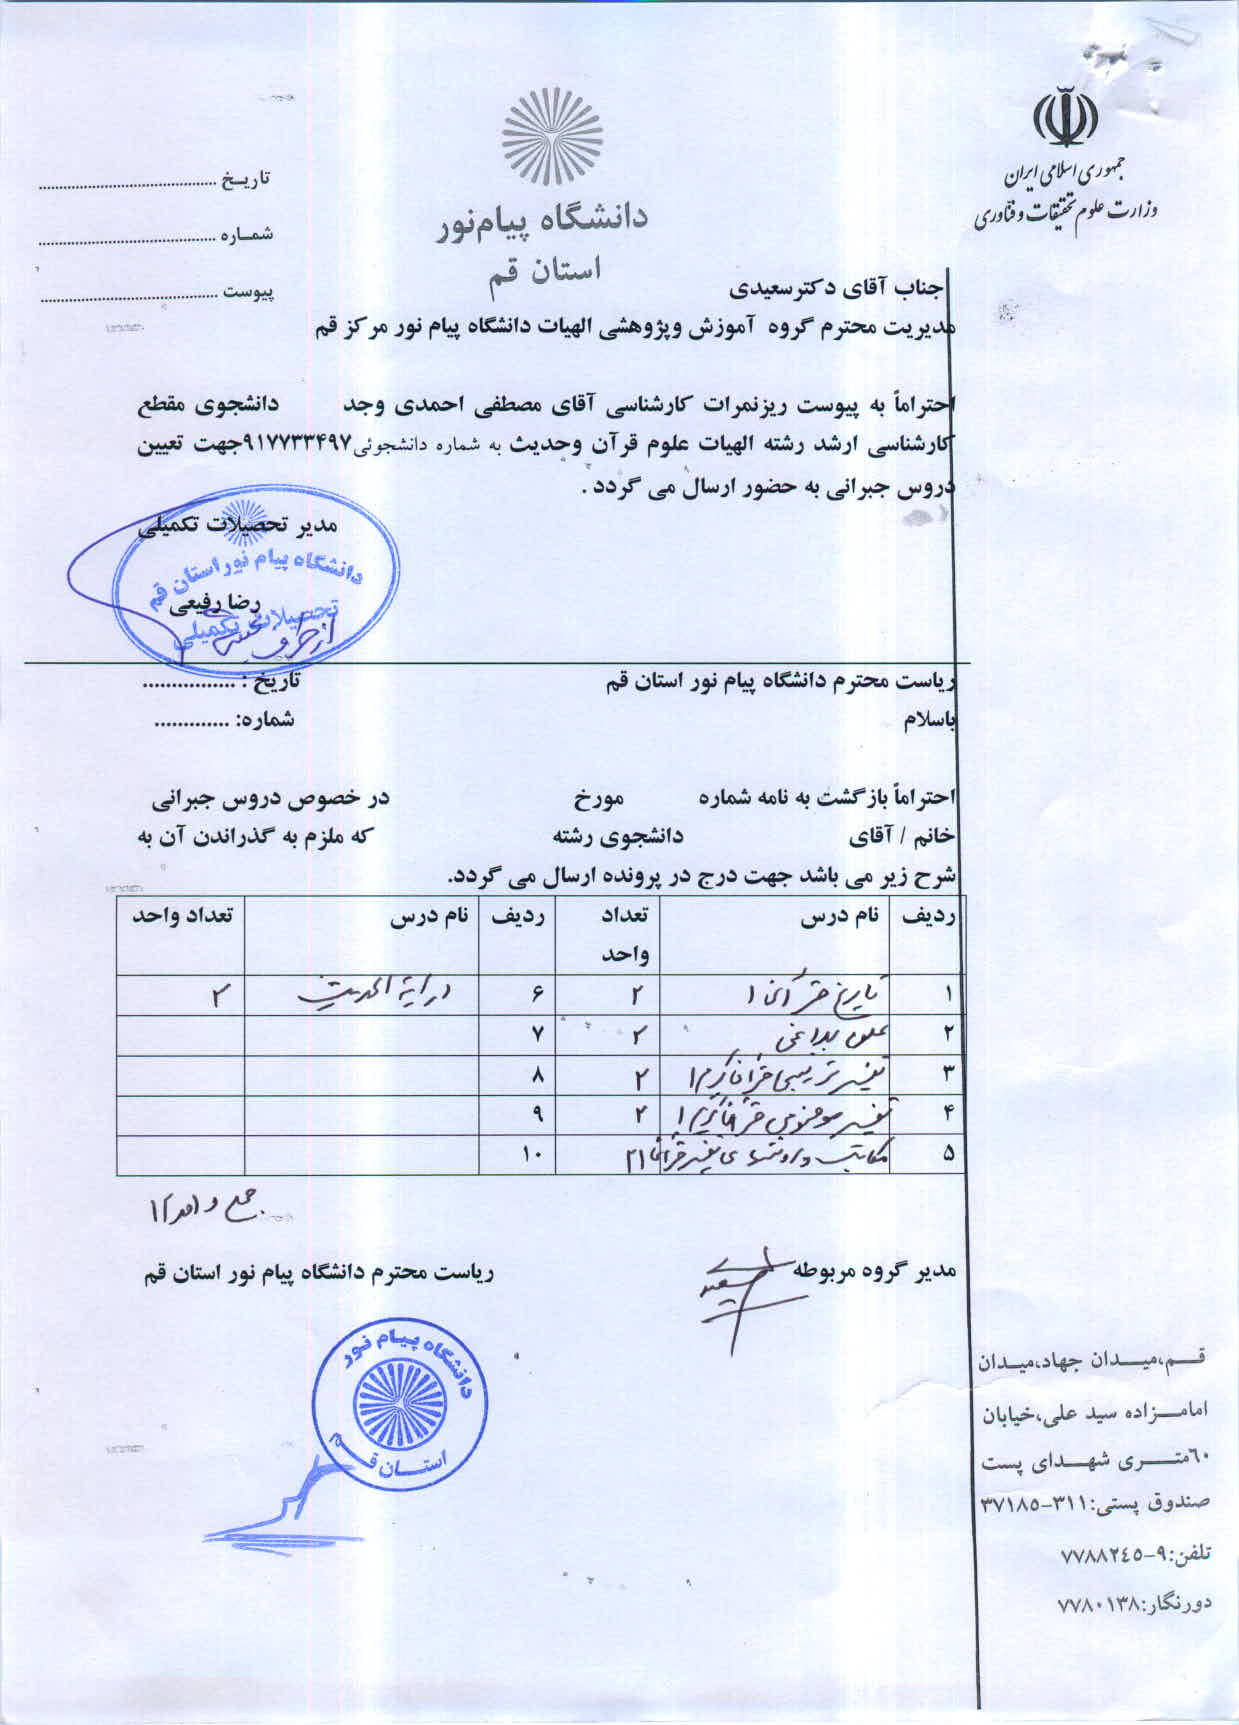 جمهوری اسلامی ایران
وزارت علوم تحقیقات و فناوری
دانشگاه پیام‌نور
استان قم
تاریـخ ............................................
شمـاره ............................................
پیوست ............................................
جناب آقای دکترسعیدی
مدیریت محترم گروه آموزش وپژوهشی الهیات دانشگاه پیام نور مرکز قم
احتراماً به پیوست ریزنمرات کارشناسی آقای مصطفی احمدی وجد دانشجوی مقطع
کارشناسی ارشد رشته الهیات علوم قرآن وحدیث به شماره دانشجوئی۹۱۷۷۳۳۴۹۷جهت تعیین
دروس جبرانی به حضور ارسال می گردد .
مدیر تحصیلات تکمیلی
دانشگاه پیام نور استان قم
رضا رفیعی
تحصیلات تکمیلی
از طرف
ریاست محترم دانشگاه پیام نور استان قم
تاریخ : ................
باسلام
شماره: .............
احتراماً بازگشت به نامه شماره مورخ در خصوص دروس جبرانی
خانم / آقای دانشجوی رشته که ملزم به گذراندن آن به
شرح زیر می باشد جهت درج در پرونده ارسال می گردد.
ردیف نام درس تعداد واحد ردیف نام درس تعداد واحد
۱ تاریخ قرآن ۱ ۲ ۶ درایة الحدیث ۲
۲ علوم بلاغی ۲ ۷
۳ تفسیر ترتیبی قرآن کریم ۱ ۲ ۸
۴ تفسیر موضوعی قرآن کریم ۱ ۲ ۹
۵ مکاتب و روشهای تفسیر قرآن ۲۱ ۱۰
جمع واحد
مدیر گروه مربوطه
ریاست محترم دانشگاه پیام نور استان قم
دانشگاه پیام نور
استان قم
قـم،میـدان جهاد،میـدان
امامـزاده سید علی،خیابان
۶۰متـری شهـدای پست
صندوق پستی:۳۱۱-۳۷۱۸۵
تلفن:۹-۷۷۸۸۲۴۵
دورنگار:۷۷۸۰۱۳۸